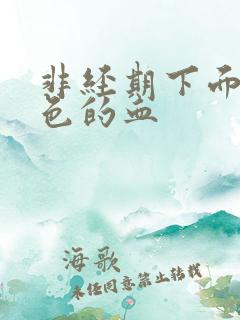 非经期下而
色的血
海歌
未经同意禁止转载